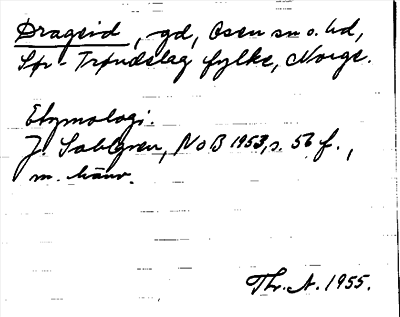 Drageid, gd, Osen sn o. hd,
Sør-Trøndelag fylke, Norge.
Etymologi.
J. Sahlgren, NoB 1953, s. 56 f.,
m. hänv.
Th. A. 1955.